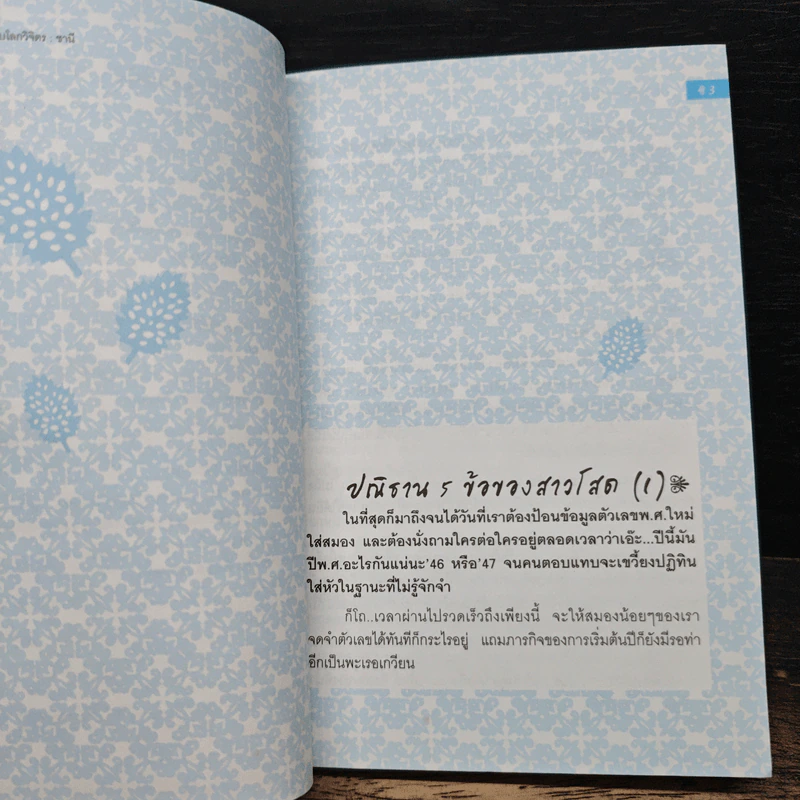 โลกวิจิตร : ชานี
ปณิธาน ๕ ข้อของสาวโสด (๑)
ในที่สุดก็มาถึงจนได้วันที่เราต้องป้อนข้อมูลตัวเลขพ.ศ.ใหม่
ใส่สมอง และต้องนั่งถามใครต่อใครอยู่ตลอดเวลาว่าเอ๊ะ...ปีนี้มัน
ปีพ.ศ.อะไรกันแน่นะ'46 หรือ'47 จนคนตอบแทบจะเขวี้ยงปฏิทิน
ใส่หัวในฐานะที่ไม่รู้จักจำ
ก็โถ..เวลาผ่านไปรวดเร็วถึงเพียงนี้ จะให้สมองน้อยๆของเรา
จดจำตัวเลขได้ทันทีก็กระไรอยู่ แถมภารกิจของการเริ่มต้นปีก็ยังมีรอท่า
อีกเป็นพะเรอเกวียน